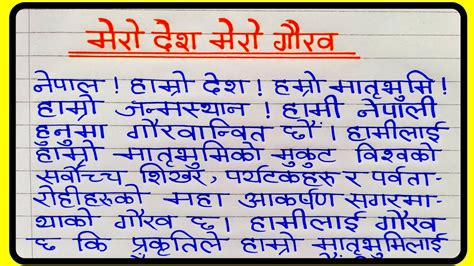 मेरो देश मेरो गौरव
नेपाल ! हाम्रो देश ! हम्रो मातृभुमि !
हाम्रो जन्मस्थान ! हामी नेपाली
हुनुमा गौरवान्वित छौं । हामीलाई
हाम्रो मातृभुमिको मुकुट विश्वको
सर्वोच्च शिखर, पर्यटकहरु र पर्वता-
रोहीहरुको महा आकर्षण सगरमा-
थाको गौरव छ । हामीलाई गौरव
छ कि प्रकृतिले हाम्रो मातृभुमिलाई